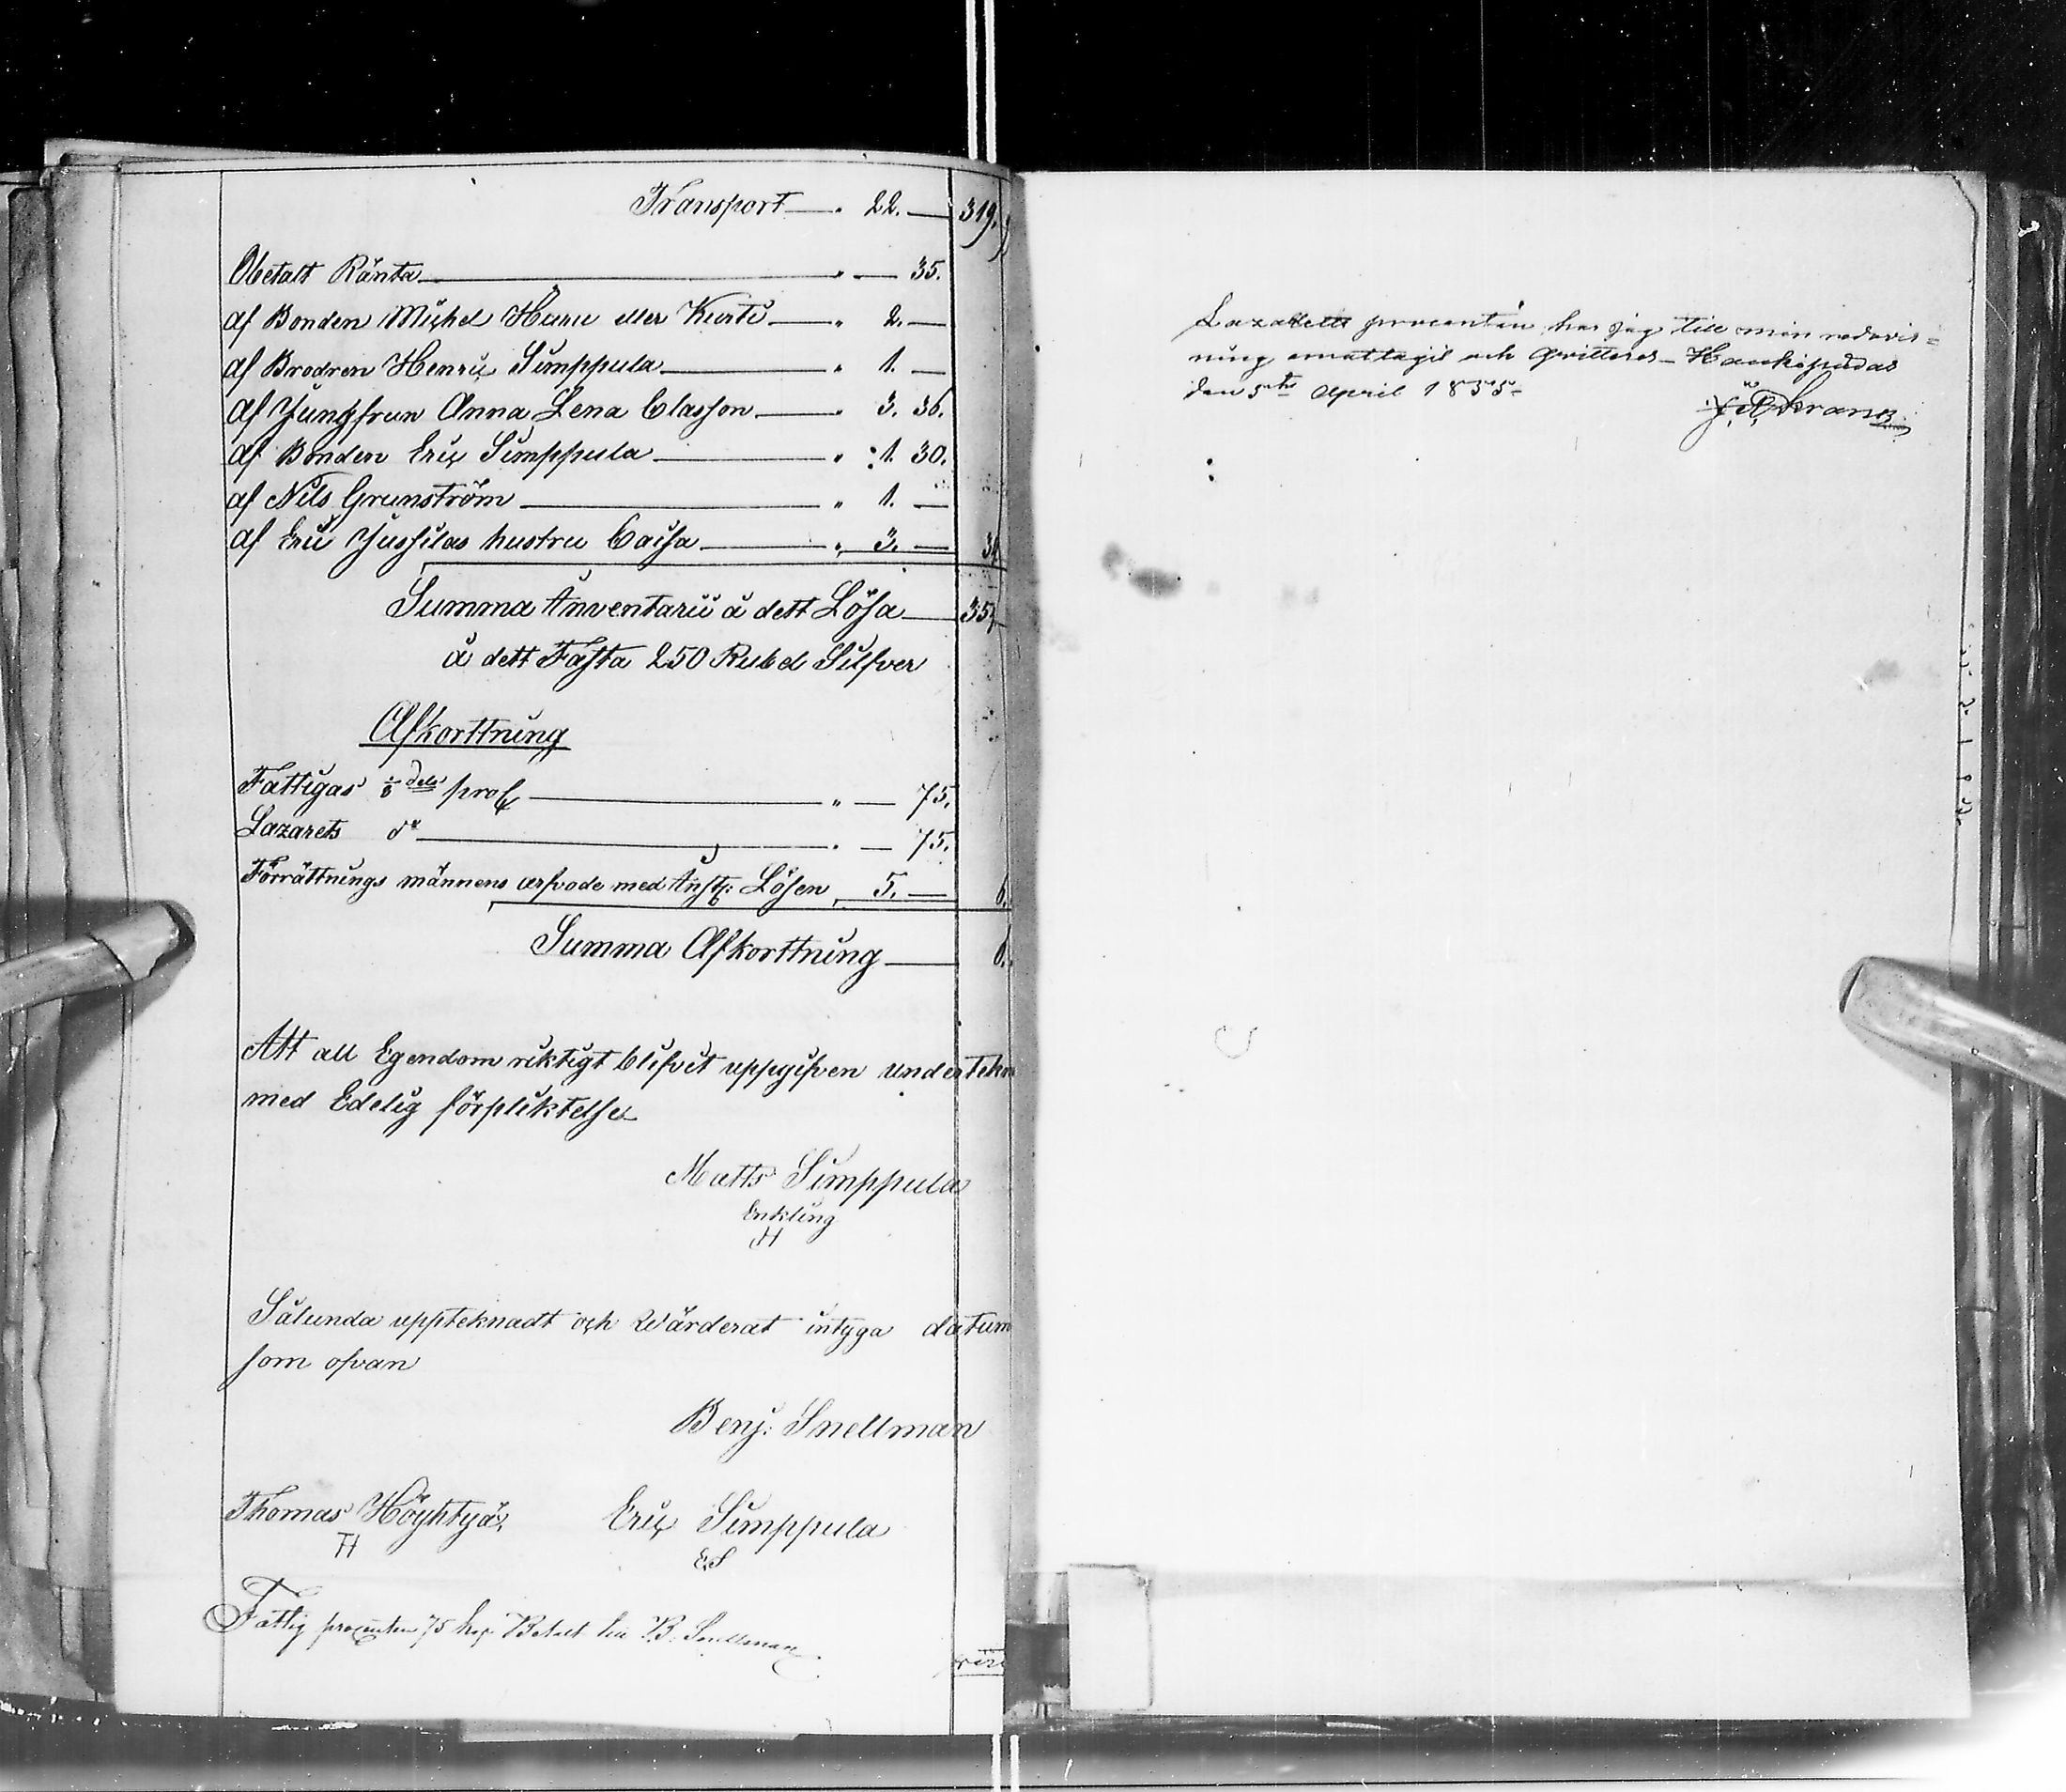 Transport — " 22. — 319.
Obetalt Ränta — " — 35.
af Bonden Michel Huru eller Kurti — " 2. —
af Brodren Henric Simppula — " 1. —
af Jungfrun Anna Lena Classon — " 3. 36.
af Bonden Eric Simppula — " 1. 30.
af Nils Grunström — " 1. —
af Eric Jussilas hustru Caisa — " 3. — 34
Summa Inventarii å dett Lösa — 357
å dett Fasta 250 Rubel Silfver
Afkorttning
Fattigas 1/8 dels proC — " — 75.
Lazarets do — " — 75.
Förrättnings männens arfvode med Lösen 5. — 6.
Summa Afkorttning — 6.
Att all Egendom riktigt blifvit uppgifven undertekn
med Edelig förpliktelse
Matts Simppula
Enkling
Sålunda uppteknadt och Wärderat intyga datum
som ofvan
Benj: Snellman
Thomas Höyhtyä, Eric Simppula
TH ES
Fattig procenten 75 kop Betalt B. Snellman
Lazaretts procenten har jag till min redovis=
ning emottagit och qvitteras Haukipudas
den 5te April 1855